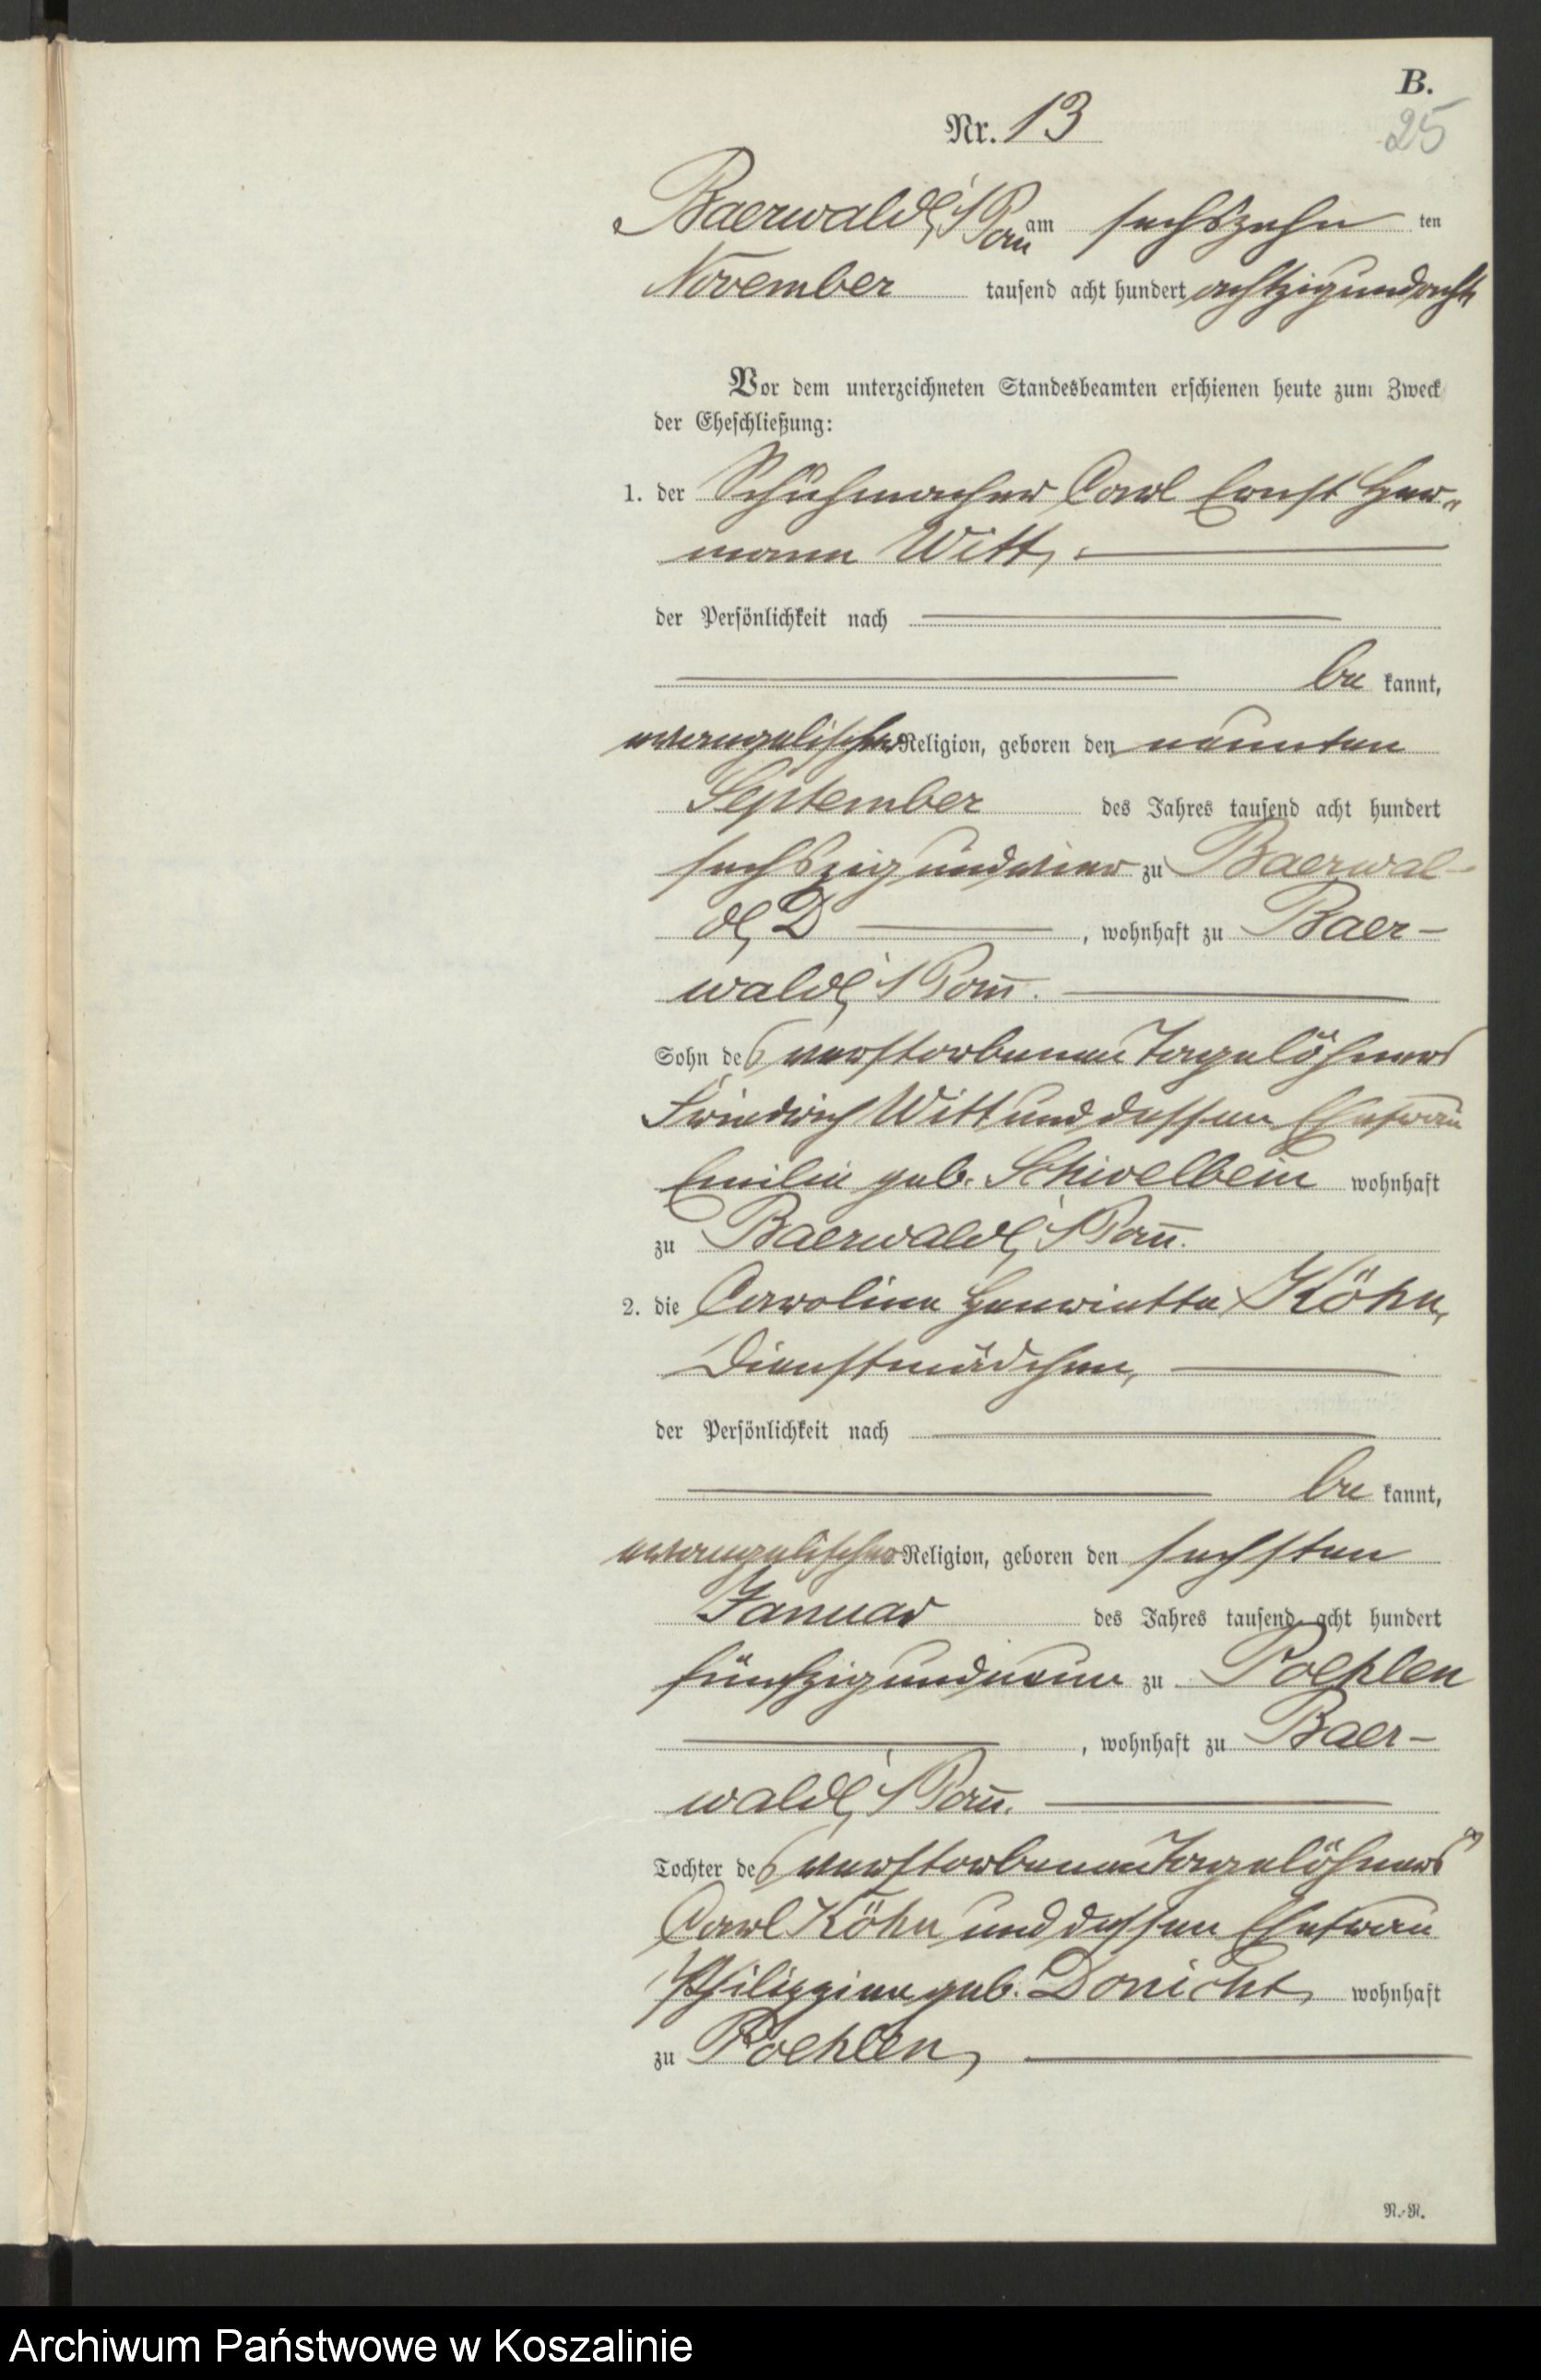 B.
25
Nr. 13
Baerwalde, i/Pom am sechszehn ten
November tausend acht hundert achtzigundacht
Vor dem unterzeichneten Standesbeamten erschienen heute zum Zweck
der Eheschließung:
1. der Schuhmacher Carl Ernst Her-
mann Witt,
der Persönlichkeit nach
be kannt,
evangelischer Religion, geboren den neunten
September des Jahres tausend acht hundert
sechszigundvier zu Baerwal-
de, D , wohnhaft zu Baer-
walde, i/Pom.
Sohn des verstorbenen Tagelöhners
Friedrich Witt und dessen Ehefrau
Emilie geb. Schivelbein wohnhaft
zu Baerwalde, i/Pom.
2. die Caroline Henriette Köhn,
Dienstmädchen,
der Persönlichkeit nach
be kannt,
evangelischer Religion, geboren den sechsten
Januar des Jahres tausend acht hundert
fünfzigundneun zu Poehlen
, wohnhaft zu Baer-
walde, i/Pom.
Tochter des verstorbenen Tagelöhners
Carl Köhn und dessen Ehefrau
Philippine geb. Donicht, wohnhaft
zu Poehlen,
N.-N.
Archiwum Państwowe w Koszalinie